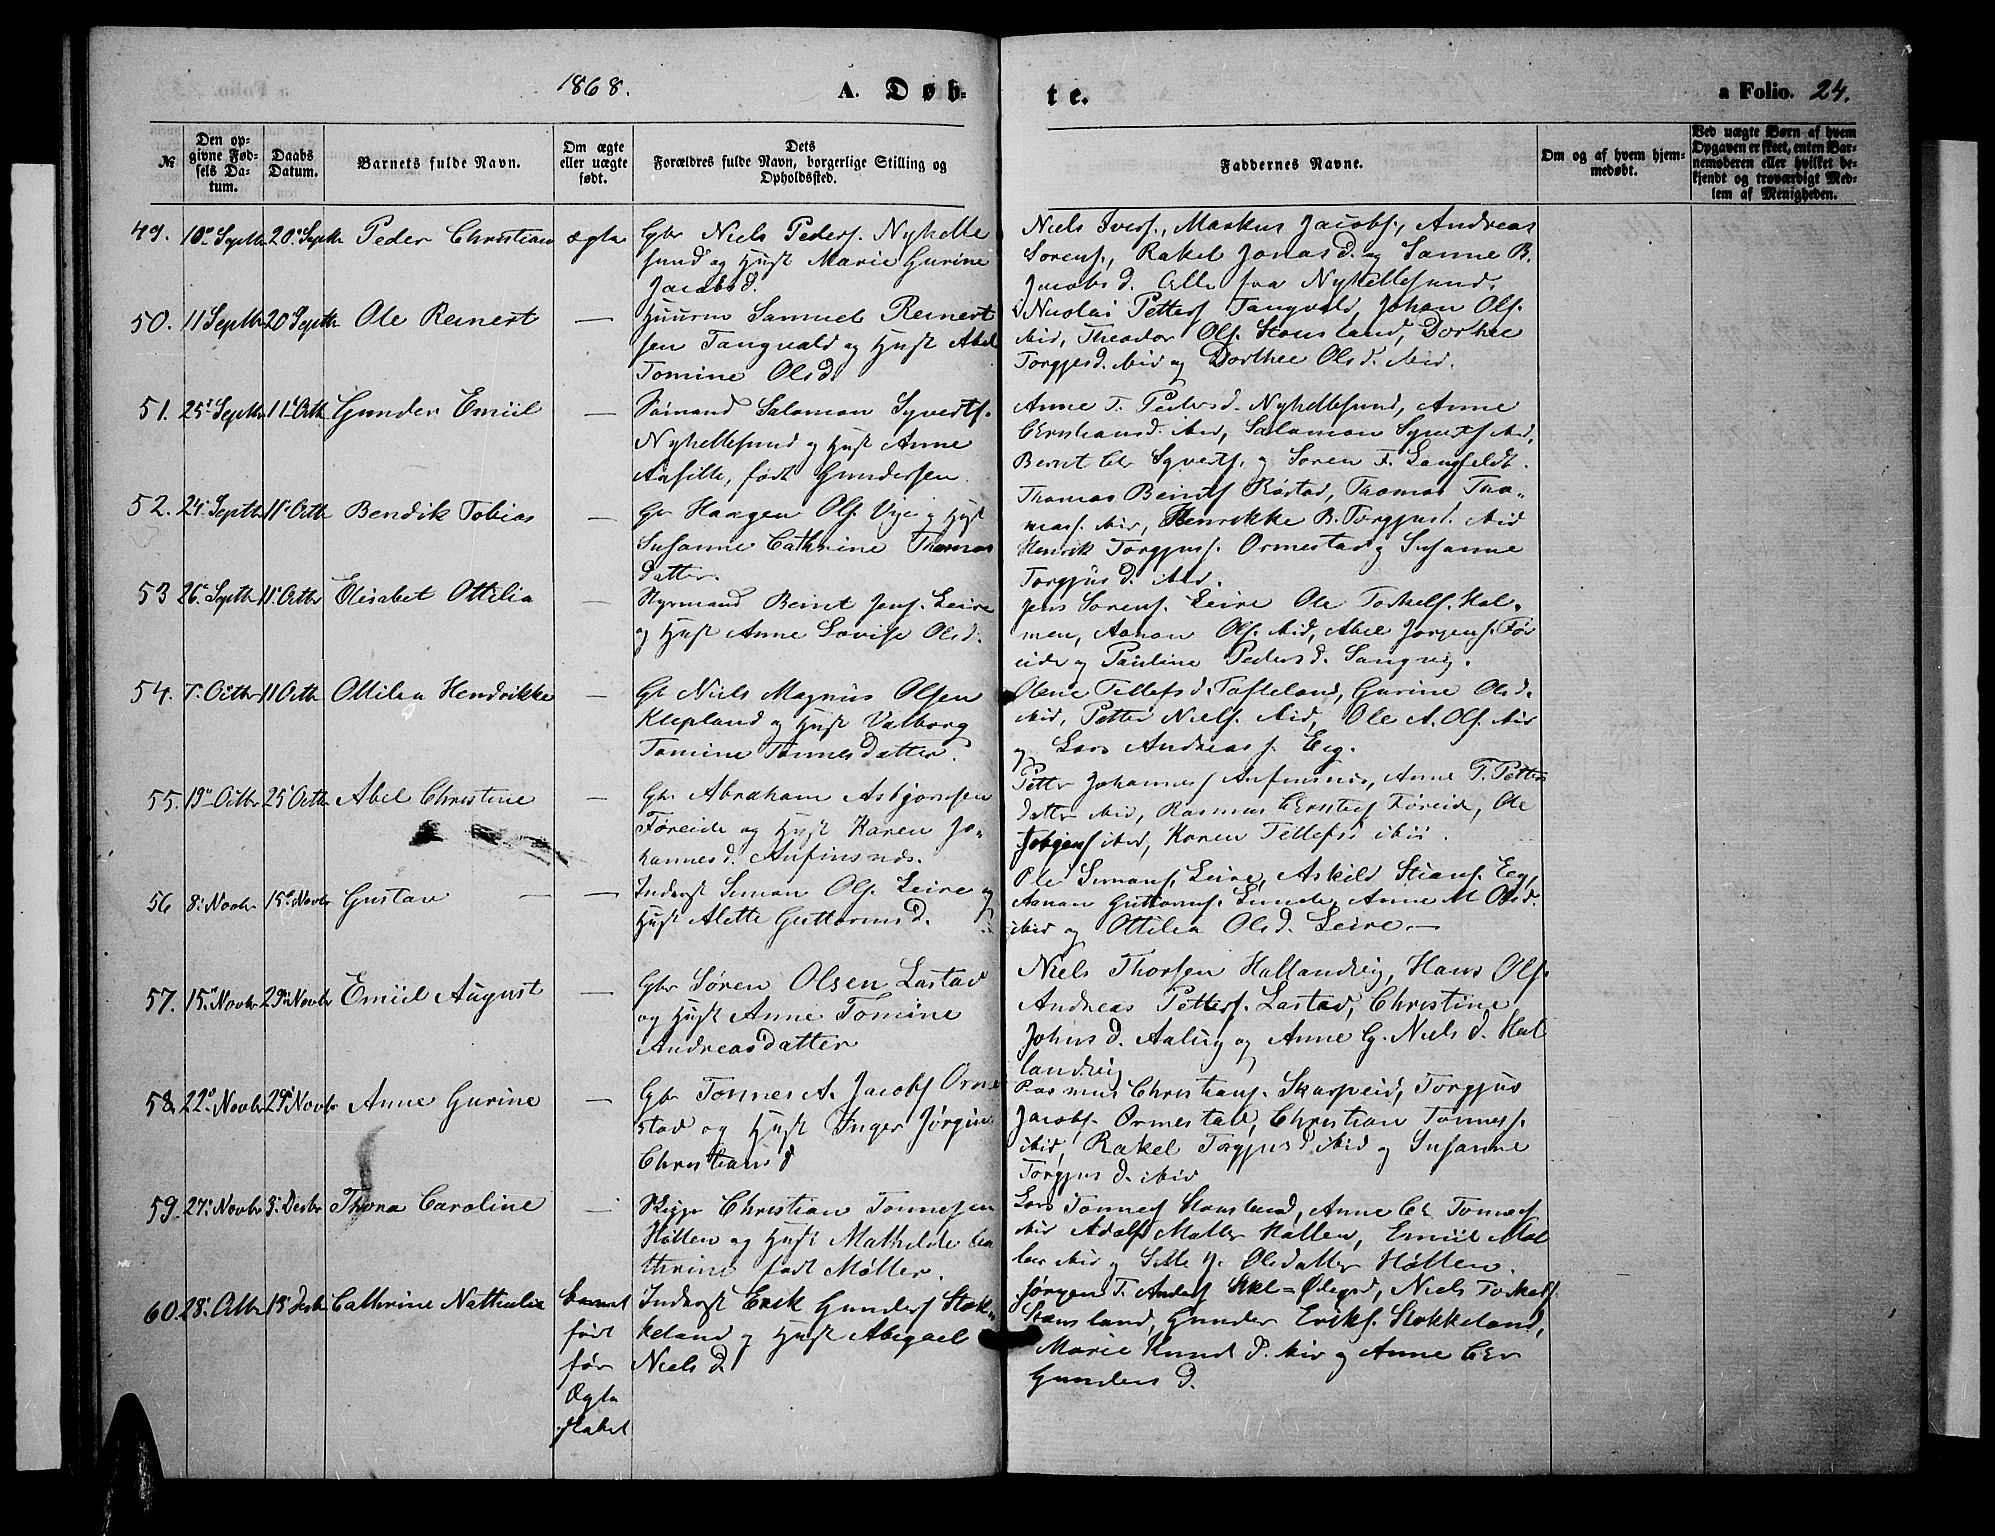 1868. A. Døb- te. a Folio. 24.
№
Den op-
givne Fød-
sels Da-
tum.
Daabs
Datum.
Barnets fulde Navn.
Om ægte
eller uægte
født.
Dets
Forældres fulde Navn, borgerlige Stilling og
Opholdssted.
Faddernes Navne.
Om og af hvem hjem-
medøbt.
Ved uægte Børn af hvem
Opgaven er skeet, enten Bar-
nemoderen eller hvilket be-
kjendt og troværdigt Med-
lem af Menigheden.
49. 10de Septbr 20de Septbr Peder Christian ægte
Gbr Niels Peders. Nyhelle
sund og Hust Marie Gurine
Jacobsd.
Niels Ivers., Markus Jacobs., Andreas
Sørens., Rakel Jonasd. og Sanne B.
Jacobsd. Alle fra Nyhellesund.
50. 11 Septbr 20 Septbr Ole Reinert —
Huusm Samuel Reinert
sen Tangvald og Hust Abel
Tomine Olsd.
Nicolai Petters Tangvald, Johan Ols.
ibid, Theodor Ols. Stausland, Dorthee
Torgjesd. ibid og Dorthee Olsd. ibid.
51. 25de Septbr 11te Octb Gunder Emiil —
Sømand Salomon Syverts.
Nyhellesund og Hust Anne
Asfille, født Gundersen.
Anne T. Pedersd. Nyhellesund, Anne
Christiansd. ibid, Salomon Syverts ibid,
Bernt Chr Syverts. og Søren F. Langfeldt.
52. 24. Septbr 11te Octb Bendik Tobias —
Gbr Haagen Ols. Vije og Hust
Susanne Cathrine Thomas
datter.
Thomas Bents Røstad, Thomas Tho-
mass. ibid, Henrikke B. Torgjusd. ibid
Henrik Torgjuss. Ormestad og Susanne
Torgjusd. ibid.
53 26. Septbr 11. Octbr Elisabet Ottilia —
Styrmand Bernt Jens. Leire
og Hust Anne Lovise Olsd.
Jens Sørens. Leire Ole Torkels. Hol-
men, Aanon Ols. ibid, Abel Jørgens. Før
eide og Pauline Pedersd. Sangvig.
54. 7. Octbr 11 Octbr Ottilia Hendrikke —
Gb Niels Magnus Olsen
Klepland og Hust Valborg
Tomine Tønnesdatter.
Olene Tellefsd. Tofteland, Gurine Olsd.
ibid, Petter Niels. ibid, Ole A. Ols. ibid
og Lars Andreass. Eeg.
55. 19de Octbr 25de Octbr Abel Christine —
Gbr Abraham Asbjørnsen
Føreide og Hust Karen Jo-
hannesd. Aufinsnæs.
Petter Johannes Aufinsnæs, Anne T. Petters
datter ibid, Rasmus Christs Føreide, Ole
Jørgens ibid, Karen Tellefsd ibid.
56 8. Novbr 15de Novbr Gustav —
Inderst Simon Ols. Leire og
Hust Alette Guttormsd.
Ole Simons. Leire, Askild Stians. Eeg,
Aanon Guttorms. Lunde, Anne M Olsd.
ibid og Ottilia Olsd. Leire.
57. 15de Novbr 29de Novbr Emiil August —
Gbr Søren Olsen Lastad
og Hust Anne Tomine
Andreasdatter
Niels Thorsen Hallandvig, Hans Ols.
Andreas Petters. Lastad, Christine
Johnsd. Aalvig og Anne G. Nielsd. Hal
landvig
58. 22de Novbr 29de Novbr Anne Gurine —
Gbr Tønnes A. Jacobs Orme
stad og Hust Inger Jørgine
Christiansd
Rasmus Christians. Skarpeid, Torgjus
Jacobs. Ormestad, Christian Tønness.
ibid, Rakel Torgjusd ibid og Susanne
Torgjusd. ibid
59. 27. Novbr 3. Decbr Thora Caroline —
Skipp Christian Tønnesen
Høllen og Hust Mathilde Ca
thrine født Møller.
Lars Tønnes Stausland, Anne Ch Tønnes
ibid Adolf Møller Høllen, Emiil Møl
ler ibid og Sille J. Olsdatter Høllen.
60. 28. Octbr 13 Decbr Cathrine Nathalie
født
før
Ægte
skabet
Inderst Erik Gunders Støk-
keland og Hust Abigael
Nielsd.
Jørgen T. Anders Ødegrd, Niels Torkels.
Stausland, Gunder Eriks. Støkkeland,
Marie Knudd. ibid og Anne Chr
Gundersd.